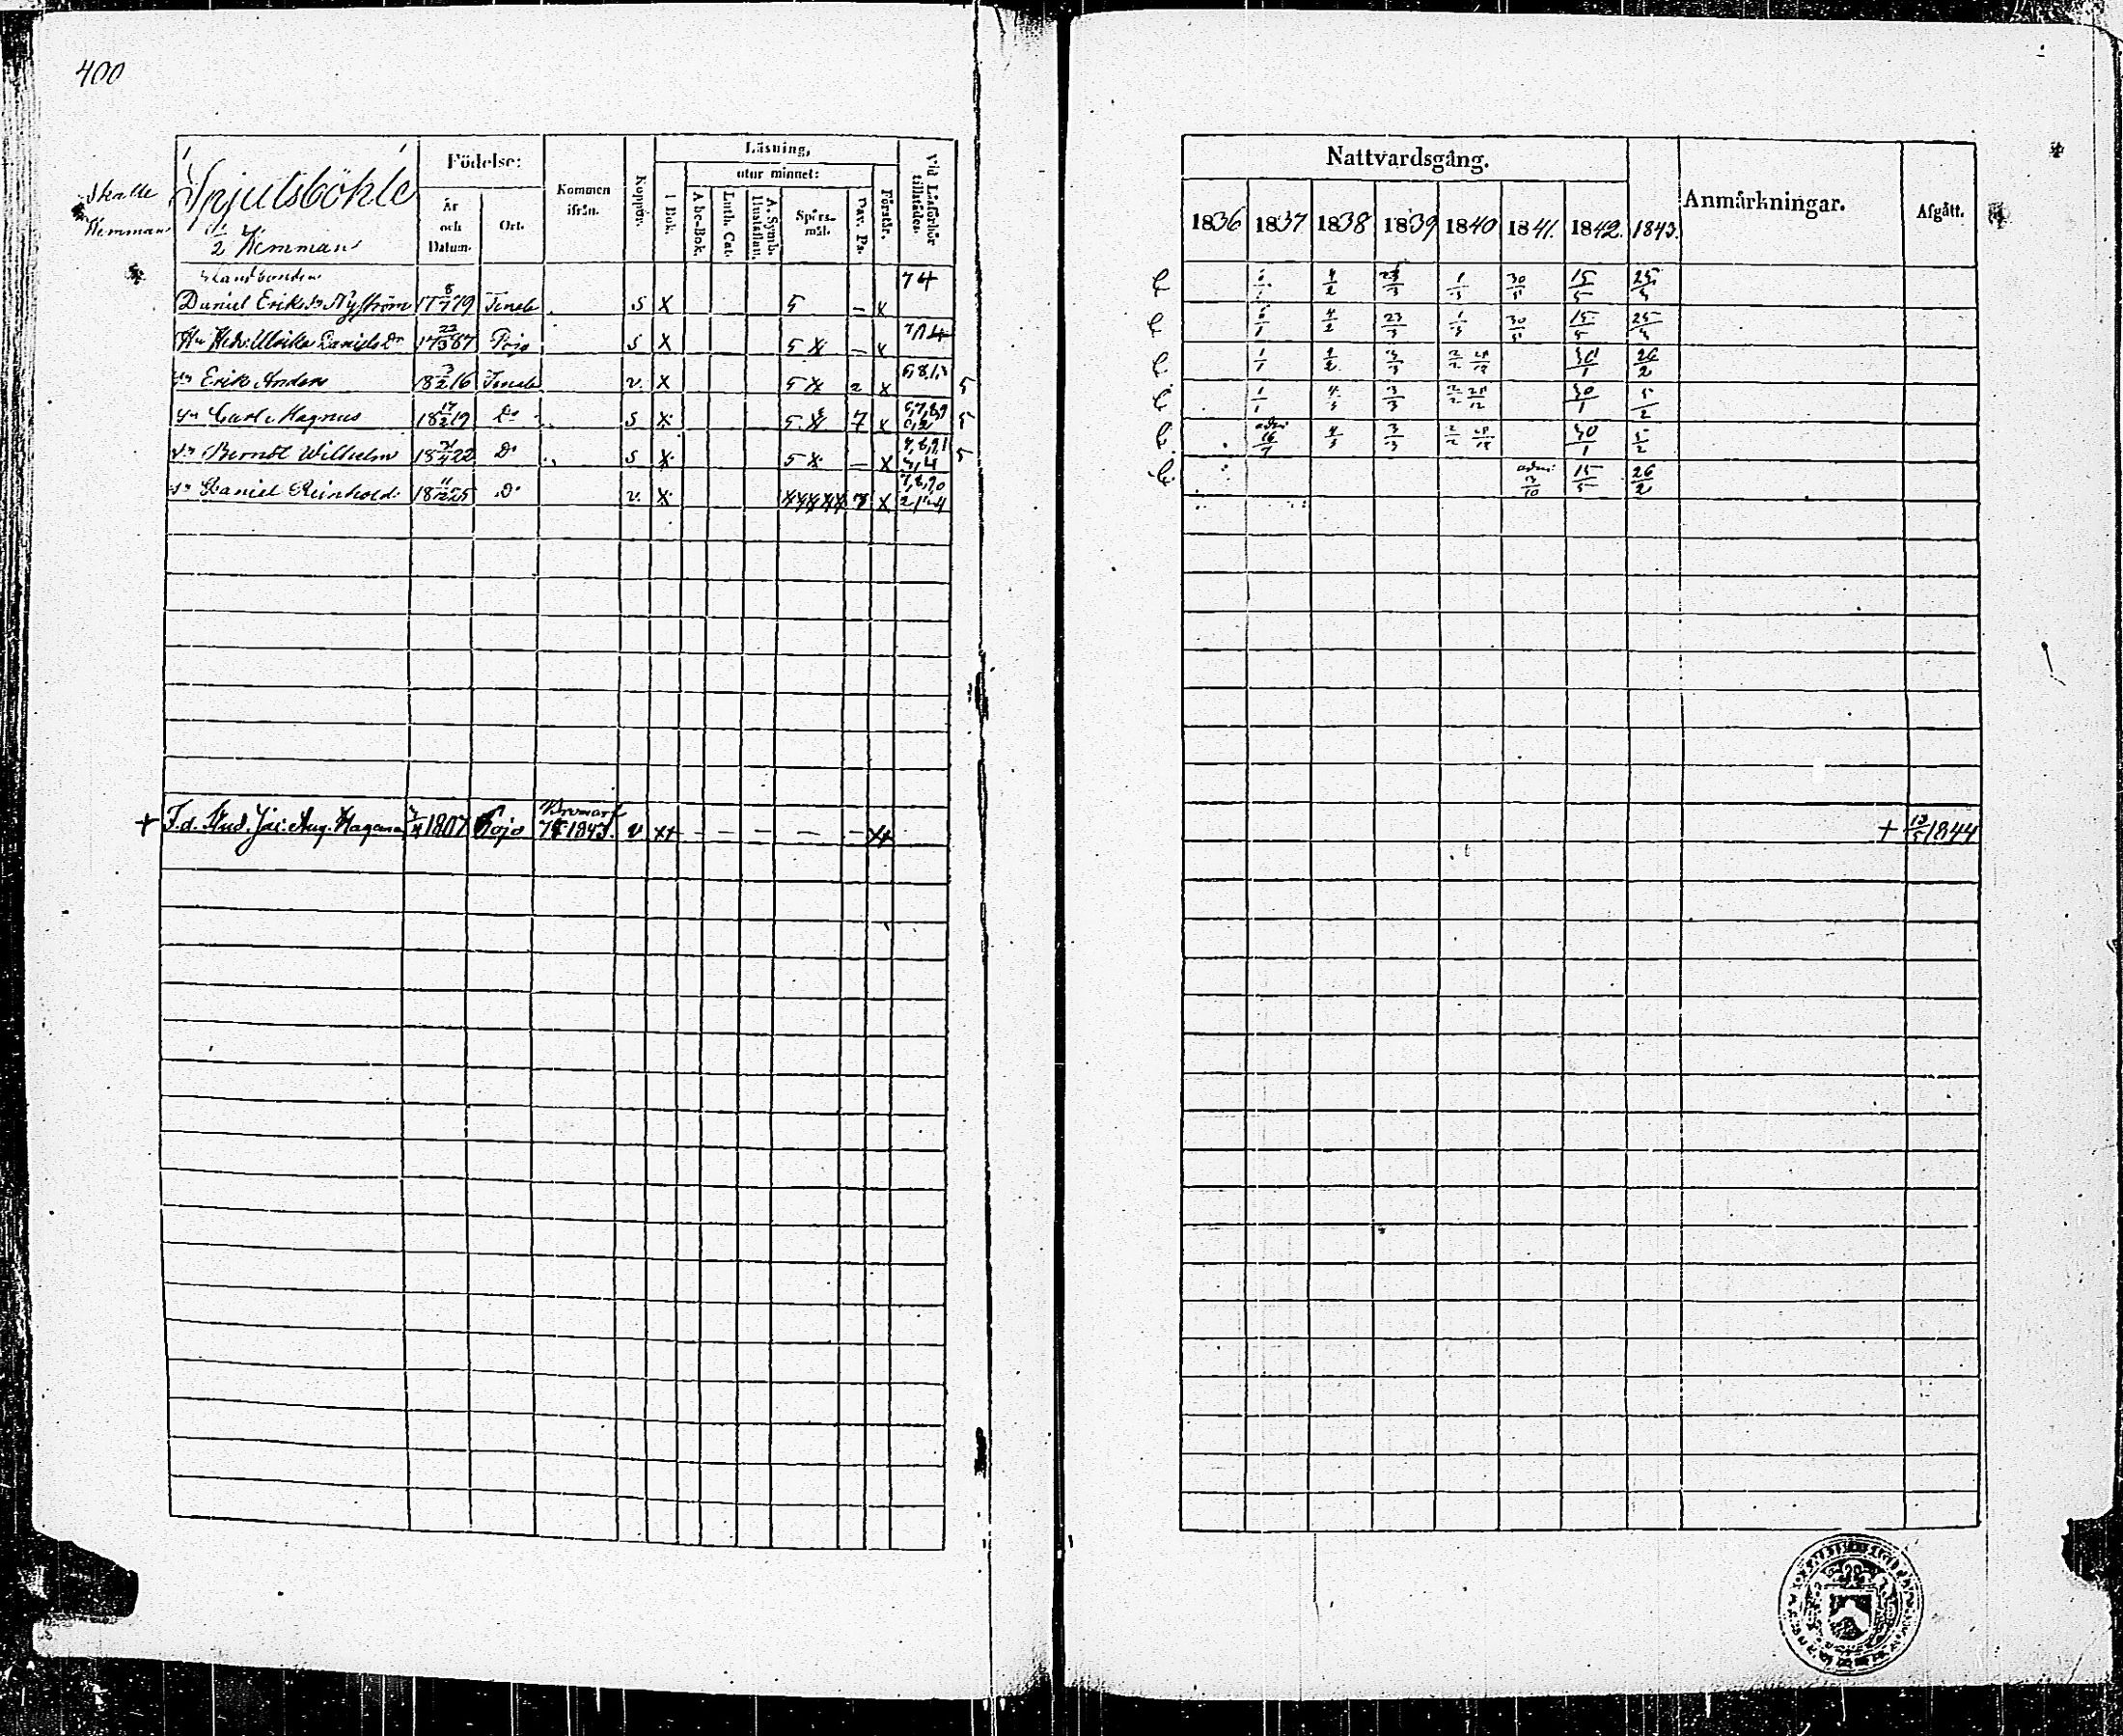 400
Skatte
Hemman
Spjutsböhle
1/2 Hemman
Födelse:
År och Datum.
Ort.
Kommen ifrån.
Koppor.
Läsning,
utur minnet:
I Bok.
A bc-Bok.
Luth. Cat.
A. Symb. Hustaflan.
Spörs-mål.
Dav. Ps.
Förstår.
Vid Läsförhör tillstädes.
Landbonden 74
Daniel Eriks Sn Nyström 17 8/7 79 Tenala S X 5 – x
Hu Hed. Ulrika Daniels Dr 17 22/3 87 Pojo S X 5 X – x
Sn Erik Anders 18 3/2 16 Tenala v. X 5 X 2 X 5
Sn Carl Magnus 18 17/2 19 Do S X 5 X 7 x 5
Sn Berndt Wilhelm 18 22 Do S X 5 X – X 5
Sn Daniel Reinhold 18 25 Do v. X X X X X X 7 X
+ F.d. Stud. Jac. Aug. Hagman 1807 Pojo Bromarf 1843. v x+ – – – – – x+
Nattvardsgång.
1836 1837 1838 1839 1840 1841. 1842. 1843.
Anmärkningar.
Afgått.
4/2 23/3 1/3 30/5 15/5 25/3
4/2 23/3 1/3 30/5 15/5 25/3
1/1 4/2 3/3 30/1 26/2
1/1 4/3 3/3 30/1 5/2
adm: 16/7 4/3 3/3 30/1 5/2
adm: 15/5 26/2
+ 13/5 1844